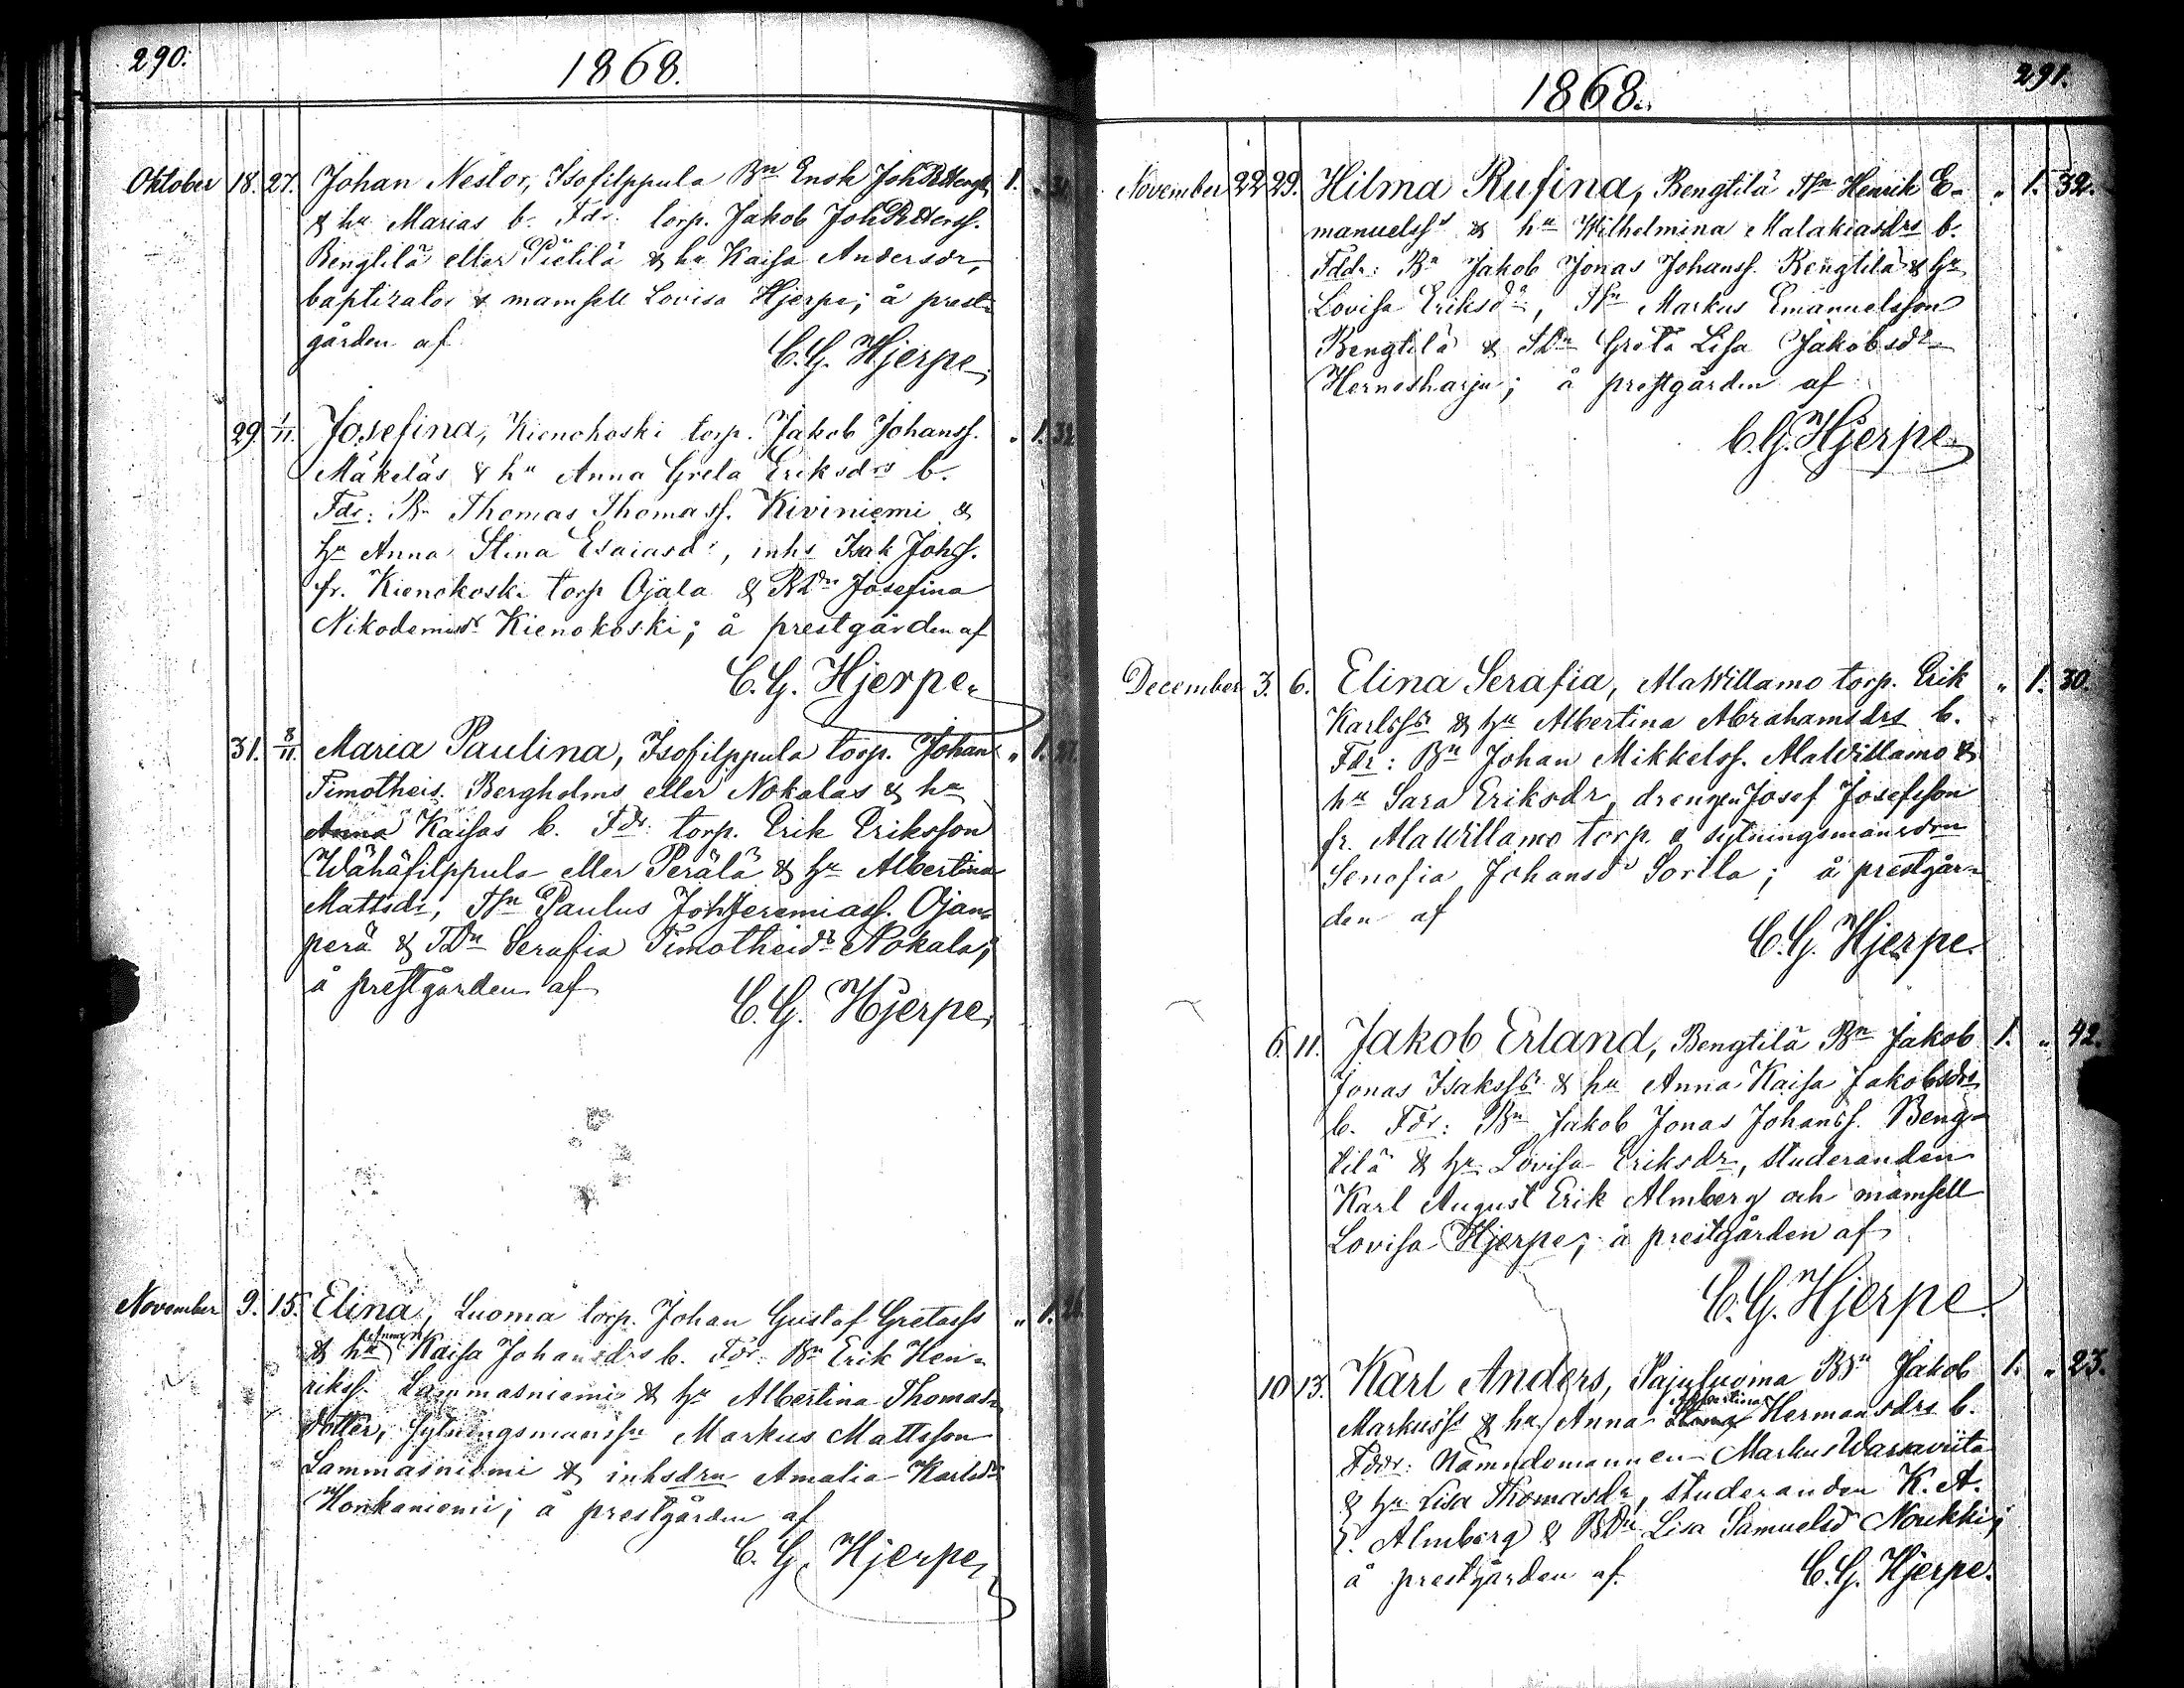 290.
1868.
Oktober 18. 27. Johan Nestor, Isofilppula Bn Enok Joh
& hu Marias b. Fdr. torp. Jakob Joh
Bengtilä eller Pietilä & hu Kaisa Andersdr,
baptizator & mamsell Lovisa Hjerpe; å prest-
gården af
C. G. Hjerpe
29. 1/11. Josefina, Kienokoski torp. Jakob Johanss. „ 1. 32
Mäkeläs & hu Anna Greta Eriksdrs b.
Fdr: Bn Thomas Thomass. Kiviniemi &
hu Anna Stina Esaiasdr, inhs Isak Johss.
fr. Kienokoski torp Ojala & BDn Josefina
Nikodemusdr Kienokoski; å prestgården af
C. G. Hjerpe
31. 8/11. Maria Paulina, Isofilppula torp. Johan „ 1.
Timotheis. Bergholms eller Nokalas & hu
Anna Kaisas b. Fdr: torp. Erik Eriksson
Wähäfilppula eller Perälä & hu Albertina
Mattsdr, TSn Paulus Joh Jeremiass. Ojan-
perä & TDn Serafia Timotheidr Nokala;
å prestgården af
C. G. Hjerpe
November 9. 15. Elina, Luoma torp. Johan Gustaf Gretass „ 1.
& hu Kaisa Johansdrs b. Fdr: Bn Erik Hen-
rikss. Lammasniemi & hu Albertina Thomas-
dotter, sytningsmanssn Markus Mattsson
Lammasniemi & inhsdrn Amalia Karlsdr
Honkaniemi; å prestgården af
C. G. Hjerpe
1868.
291.
November 22 29. Hilma Rufina, Bengtilä TSn Henrik E- „ 1. 32.
manuelss & hu Wilhelmina Malakiasdrs b.
Fddr: Bn Jakob Jonas Johanss. Bengtilä & hu
Lovisa Eriksdr, TSn Markus Emanuelsson
Bengtilä & TDn Greta Lisa Jakobsdr
Hernesharju; å prestgården af
C. G. Hjerpe
December 3. 6. Elina Serafia, AlaWillamo torp. Erik „ 1. 30.
Karlss & hu Albertina Abrahamsdrs b.
Fdr: Bn Johan Mikkelss. AlaWillamo &
hu Sara Eriksdr, drengen Josef Josefsson
fr. AlaWillamo torp. & sytningsmansdrn
Senofia Johansdr Sorila; å prestgår-
den af
C. G. Hjerpe.
6. 11. Jakob Erland, Bengtilä Bn Jakob 1. „ 42.
Jonas Isakss & hu Anna Kaisa Jakobsdrs
b. Fdr: Bn Jakob Jonas Johanss. Beng-
tilä & hu Lovisa Eriksdr, studeranden
Karl August Erik Almberg och mamsell
Lovisa Hjerpe; å prestgården af
C. G. Hjerpe
10 13. Karl Anders, Pajuluoma Bn Jakob 1. „ 23.
Albertina
Markuss & hu Anna Hermansdrs b.
Fddr: Nämndomannen Markus Warsaviita
& hu Lisa Thomasdr, studeranden K. A.
E. Almberg & BDn Lisa Samuelsd Noukki;
å prestgården af
C. G. Hjerpe.